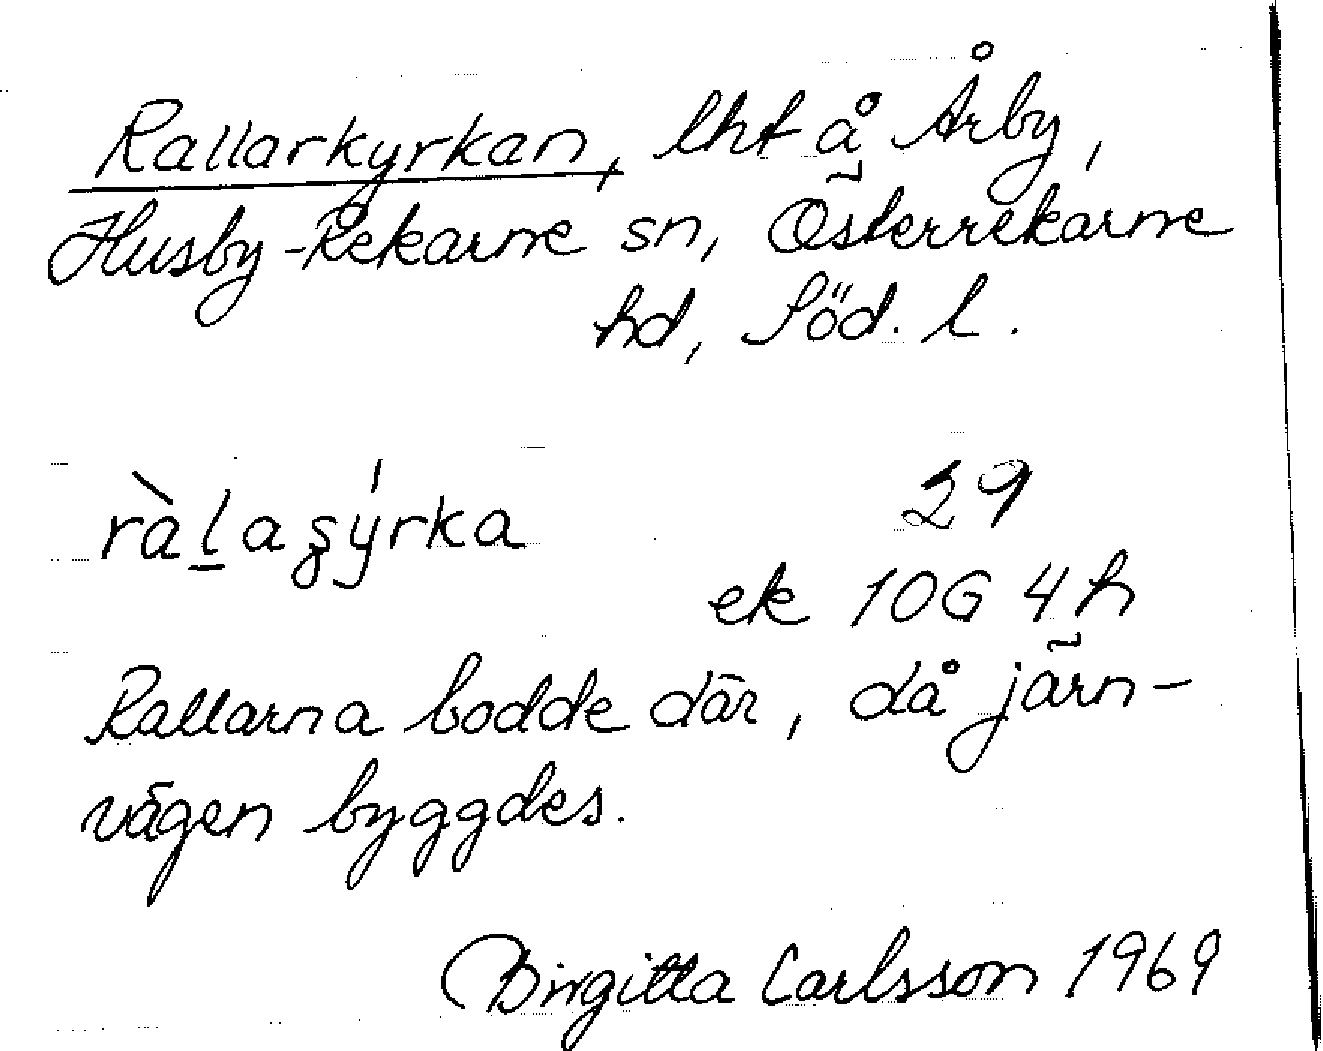 Rallarkyrkan, lht å Årby,
Husby-Rekarne sn, Österrekarne
hd, Söd. l.
ràl̲aşýrka
29
ek 10G 4h
Rallarna bodde där, då järn-
vägen byggdes.
Birgitta Carlsson 1969